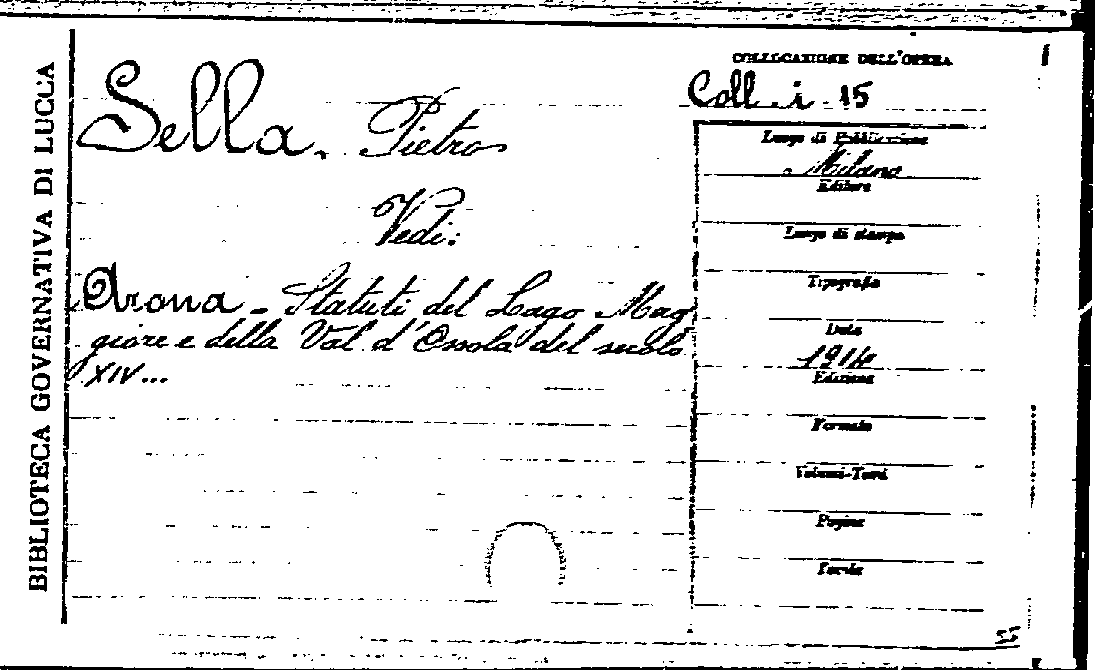 BIBLIOTECA GOVERNATIVA DI LUCCA
Sella. Pietro
Vedi:
Arona - Statuti del Lago Mag
giore e della Val d'Ossola del secolo
XIV...
COLLOCAZIONE DELL'OPERA
Coll. i. 15
Luogo di Pubblicazione
Milano
Editore
Luogo di stampa
Tipografia
Data
1914
Edizione
Formato
Volumi-Tomi
Pagine